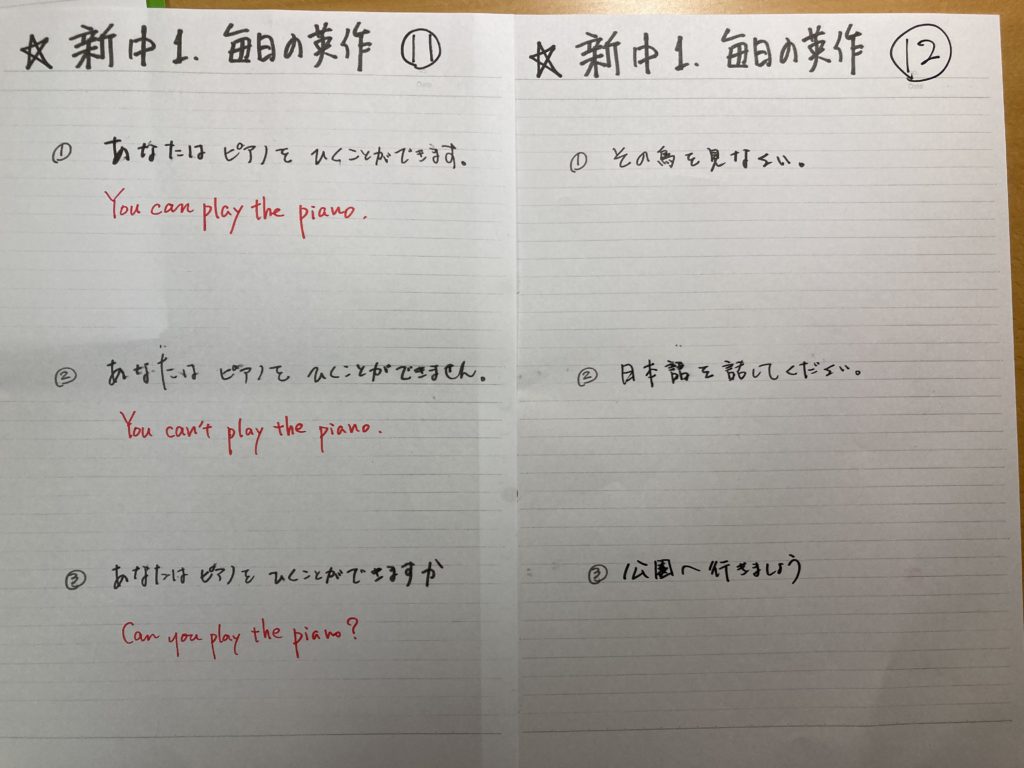 ☆ 新中1. 毎日の英作 ⑪
① あなたは ピアノを ひくことができます。
You can play the piano.
② あなたは ピアノを ひくことができません。
You can't play the piano.
③ あなたは ピアノを ひくことができますか
Can you play the piano?
☆ 新中1. 毎日の英作 ⑫
① その鳥を見なさい。
② 日本語を話してください。
③ 公園へ行きましょう